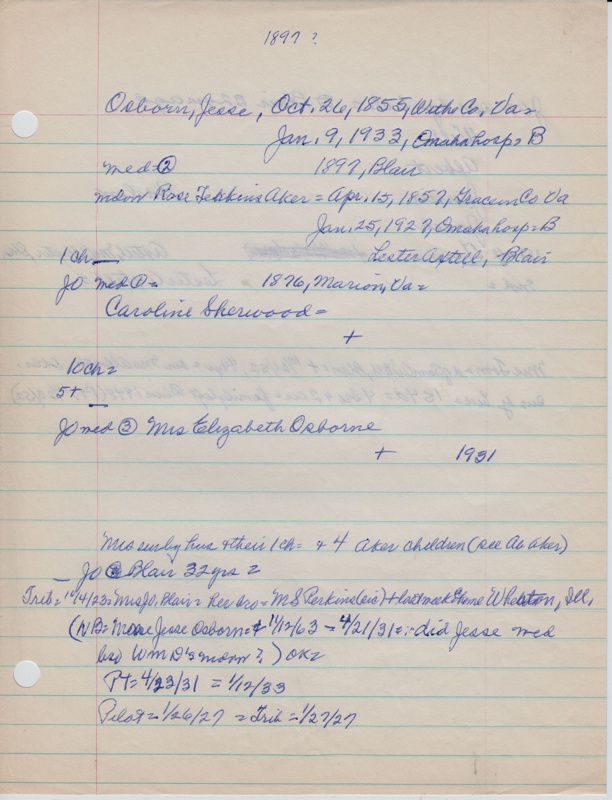 1897 ?
Osborn, Jesse, Oct. 26, 1855, Withe Co, Va =
Jan. 9, 1933, Omaha hosp = B
med = ② 1897, Blair
Rose Aker = Apr. 15, 1857, Co Va
Jan. 25, 1927, Omaha hosp = B
1 ch Lester Axtell, Blair
JO med ① = 1876, Marion, Va =
Caroline Sherwood =
+
10 ch =
5 +
JO med ③ Mrs Elizabeth Osborne
+ 1931
Mrs sur by hus + their 1 ch = + 4 Aker children (see Ab Aker)
JO Blair 32 yrs =
Trib = 10/4/23 = Mrs JO, Blair = her bro = M S Perkins (sic) + last week Wheaton, Ill,
(NB = Jesse Osborn = 11/12/63 – 4/21/31 = did Jesse med
? ) OK =
PT = 4/23/31 = 1/12/33
Pilot = 1/26/27 = Trib = 1/27/27